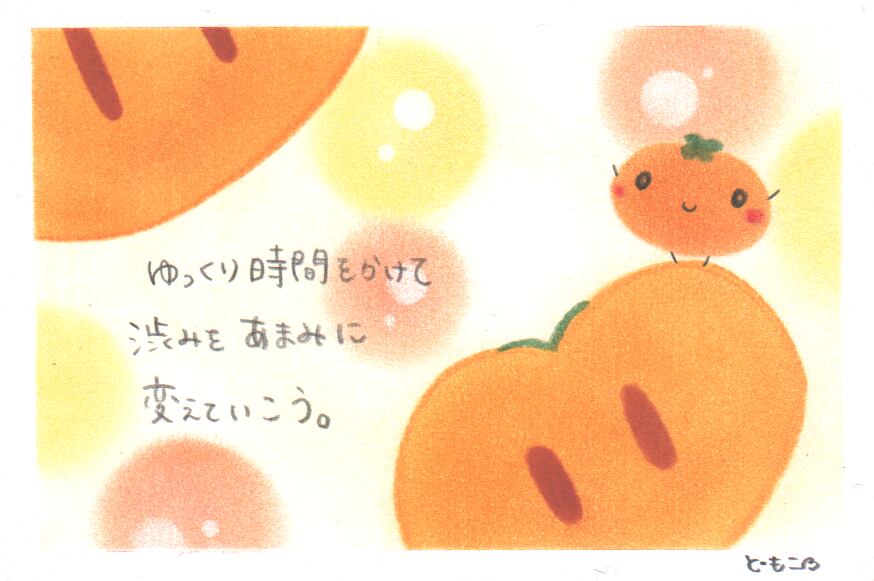 ゆっくり時間をかけて
渋みをあまみに
変えていこう。
とーもこ